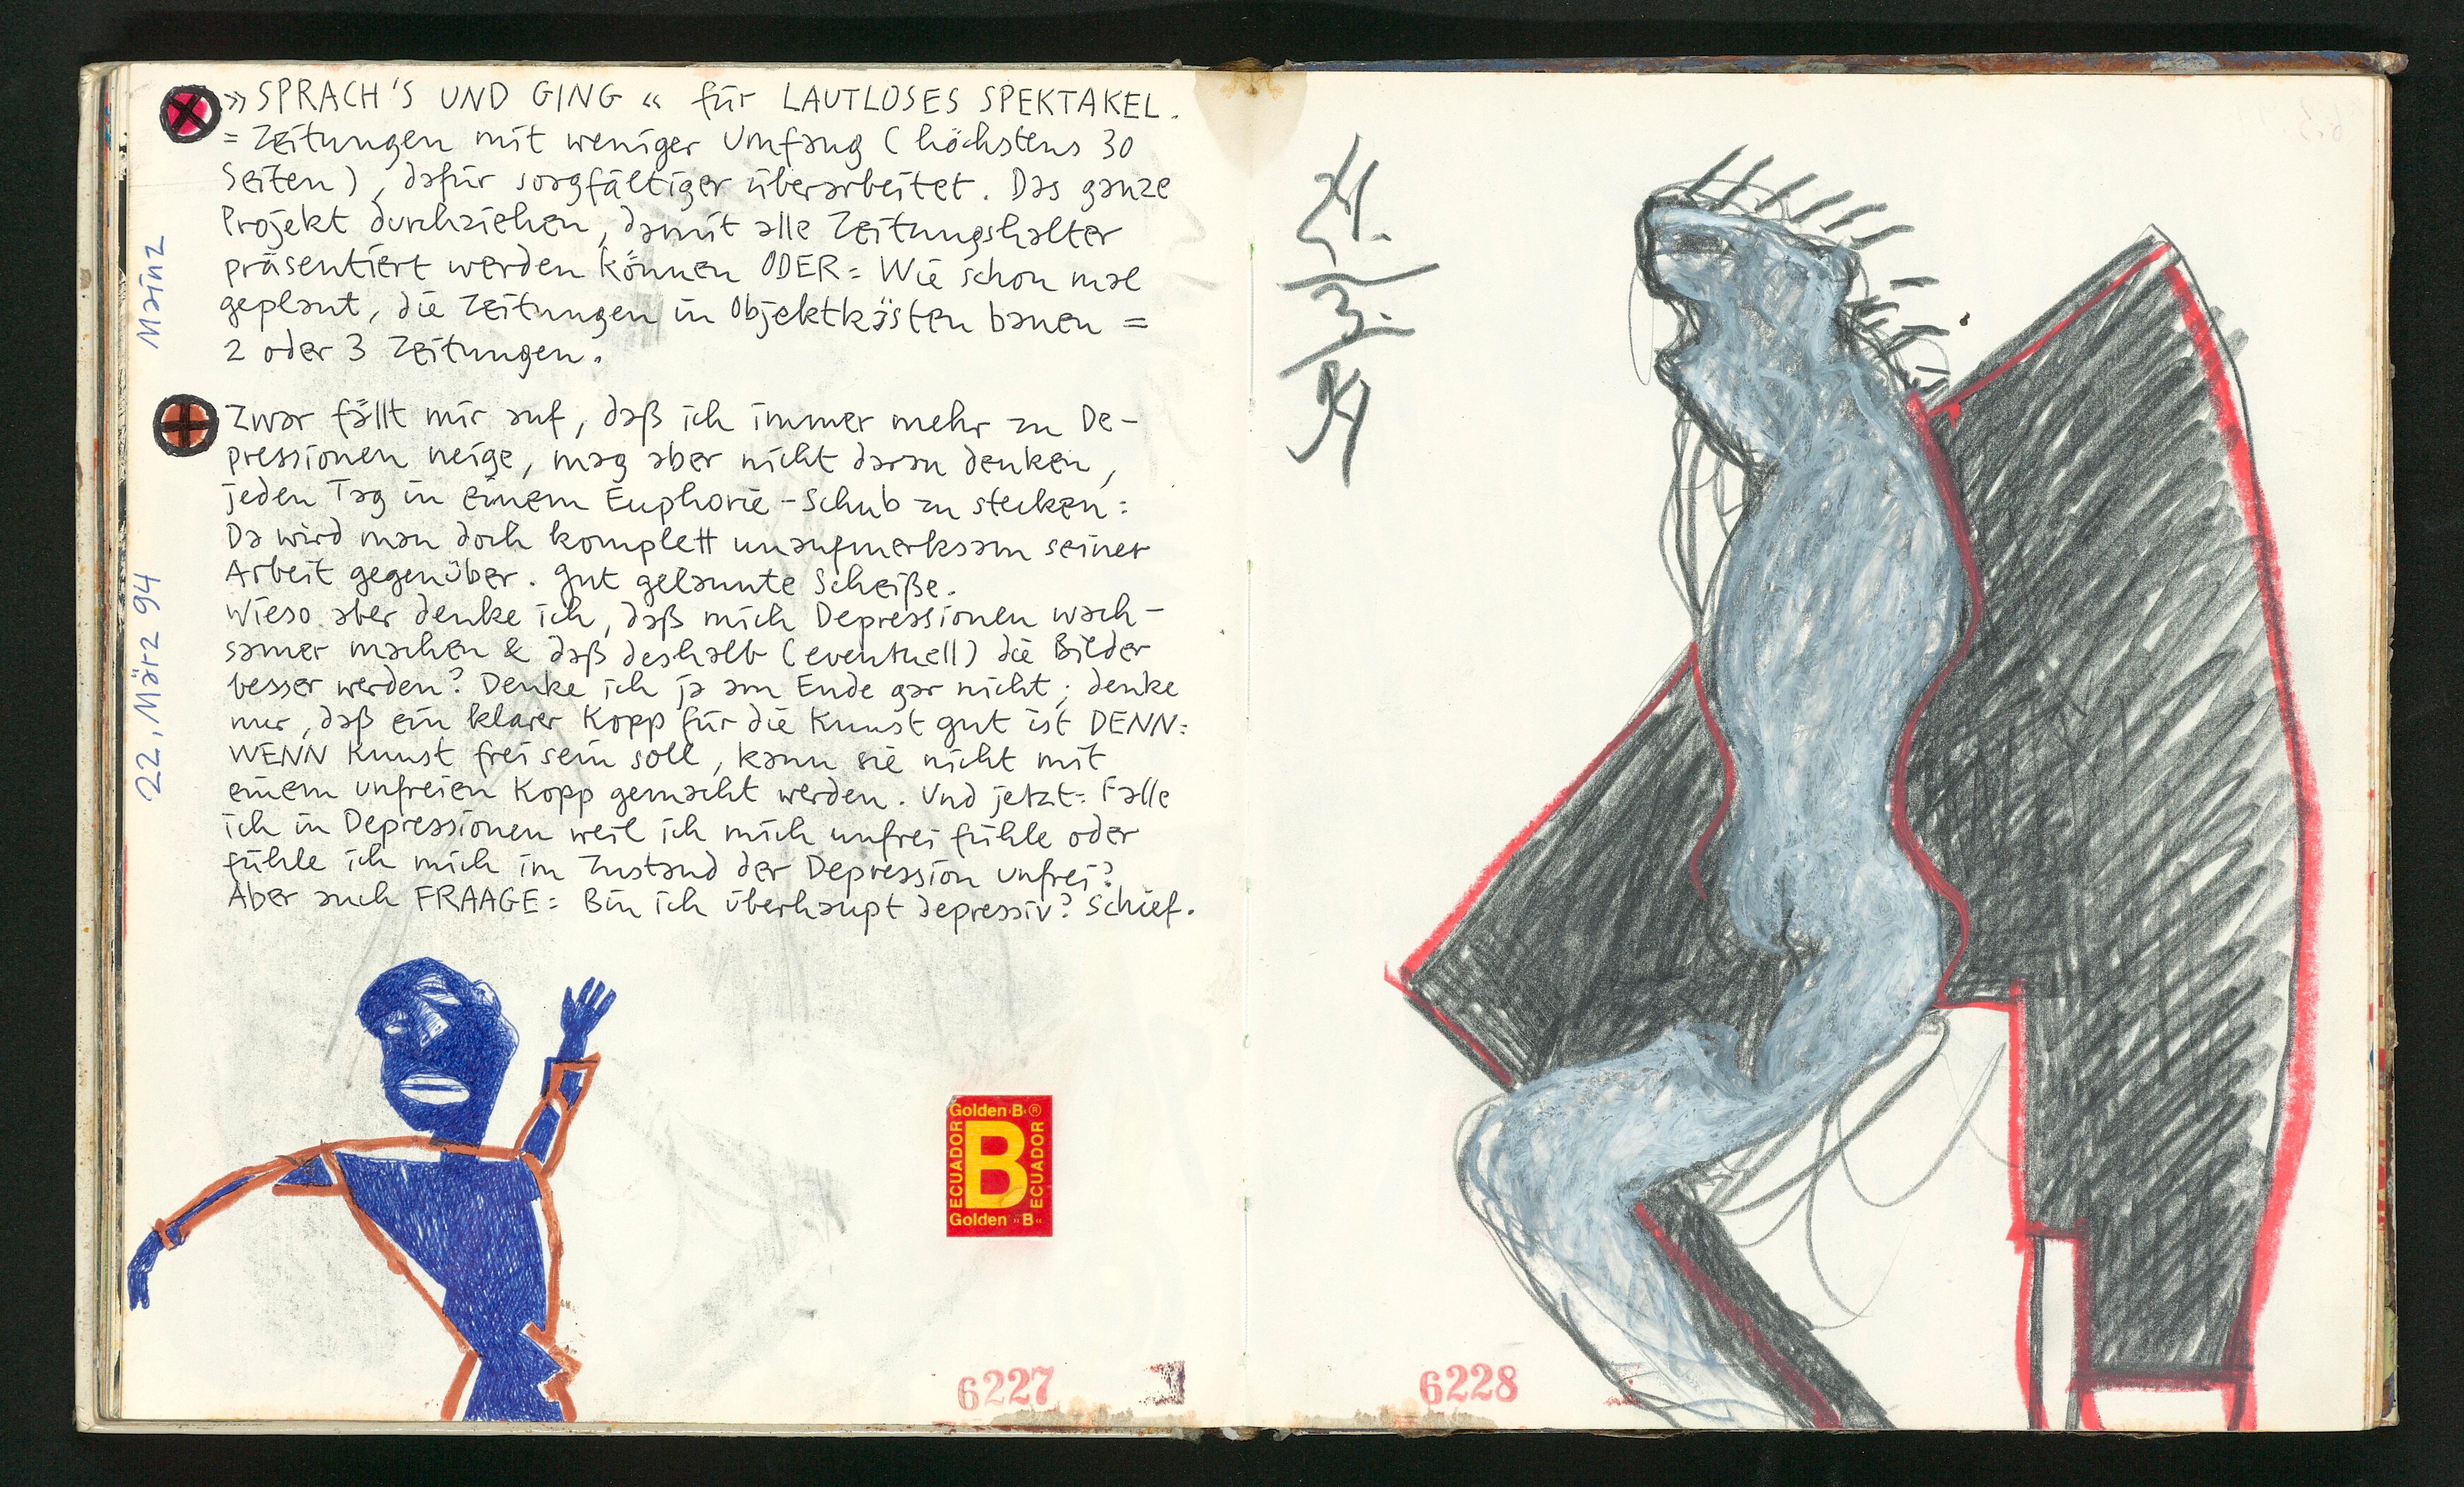 »SPRACH'S UND GING« für LAUTLOSES SPEKTAKEL.
= Zeitungen mit weniger Umfang (höchstens 30
Seiten), dafür sorgfältiger überarbeitet. Das ganze
Projekt durchziehen, damit alle Zeitungshalter
präsentiert werden können ODER: Wie schon mal
geplant, die Zeitungen in Objektkästen bauen =
2 oder 3 Zeitungen.
Mainz
Zwar fällt mir auf, daß ich immer mehr zu De-
pressionen neige, mag aber nicht daran denken,
jeden Tag in einem Euphorie-Schub zu stecken:
Da wird man doch komplett unaufmerksam seiner
Arbeit gegenüber. Gut gelaunte Scheiße.
Wieso aber denke ich, daß mich Depressionen wach-
samer machen & daß deshalb (eventuell) die Bilder
besser werden? Denke ich ja am Ende gar nicht; denke
nur, daß ein klarer Kopp für die Kunst gut ist DENN:
WENN Kunst frei sein soll, kann sie nicht mit
einem unfreien Kopp gemacht werden. Und jetzt: Falle
ich in Depressionen weil ich mich unfrei fühle oder
fühle ich mich im Zustand der Depression unfrei?
Aber auch FRAAGE: Bin ich überhaupt depressiv? Schief.
22. März 94
Golden B ®
ECUADOR
B
ECUADOR
Golden »B«
6227
21.
3.
94
6228